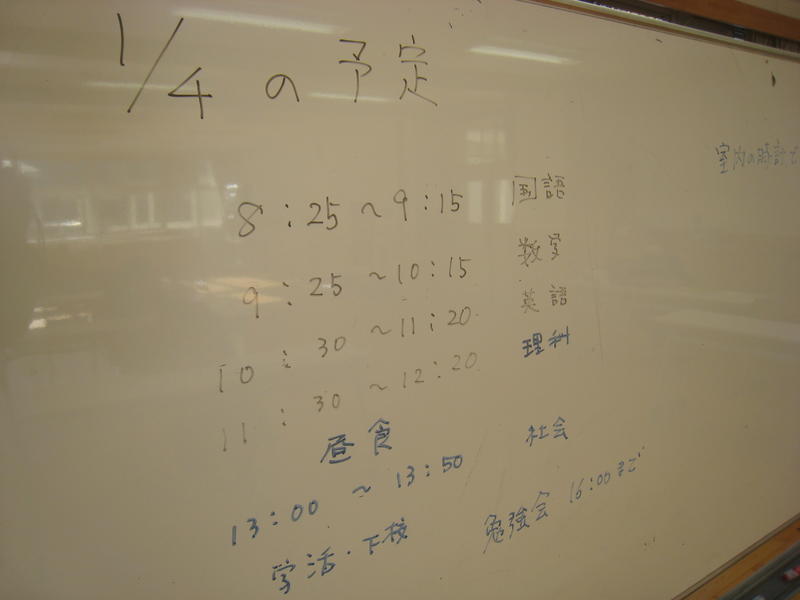 1/4の予定
8:25～9:15 国語
9:25～10:15 数学
10:30～11:20 英語
11:30～12:20 理科
昼食
13:00～13:50 社会
学活・下校 勉強会 16:00まで
室内の時計で